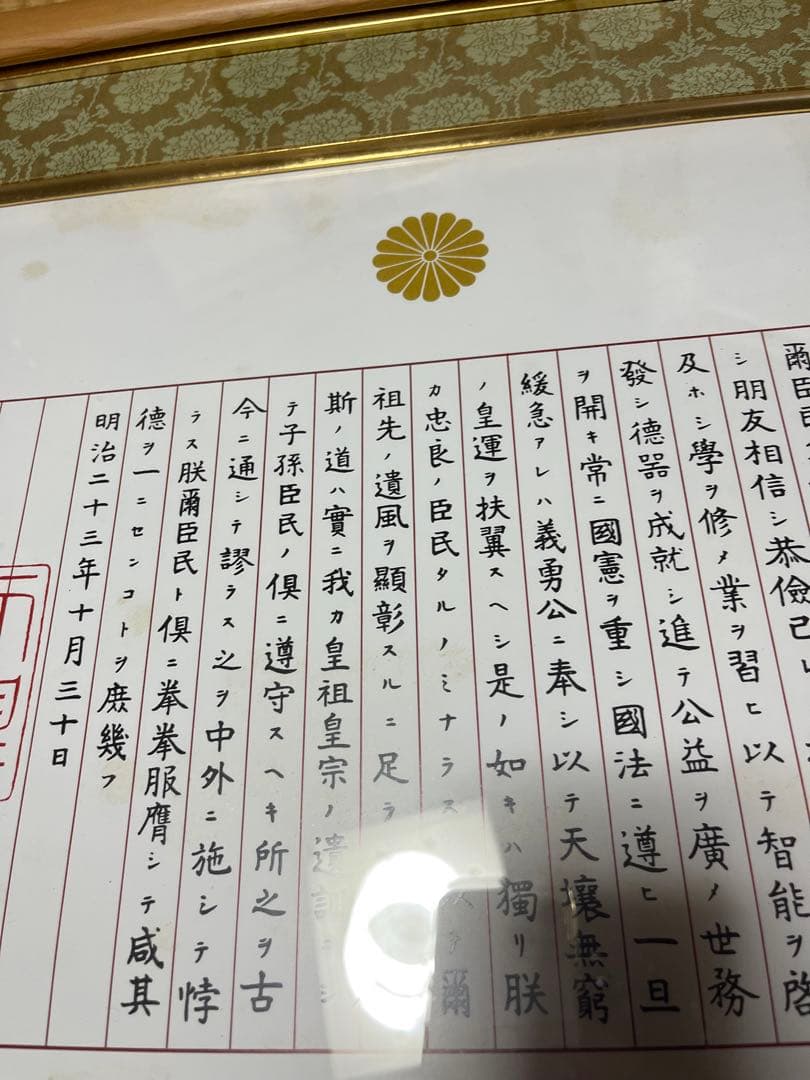 爾臣民
シ朋友相信シ恭儉己レ
及ホシ學ヲ修メ業ヲ習ヒ以テ智能ヲ啓
發シ德器ヲ成就シ進テ公益ヲ廣メ世務
ヲ開キ常ニ國憲ヲ重シ國法ニ遵ヒ一旦
緩急アレハ義勇公ニ奉シ以テ天壤無窮
ノ皇運ヲ扶翼スヘシ是ノ如キハ獨リ朕
カ忠良ノ臣民タルノミナラス又爾
祖先ノ遺風ヲ顯彰スルニ足ラ
斯ノ道ハ實ニ我カ皇祖皇宗ノ遺訓ニシ
テ子孫臣民ノ俱ニ遵守スヘキ所之ヲ古
今ニ通シテ謬ラス之ヲ中外ニ施シテ悖
ラス朕爾臣民ト俱ニ拳拳服膺シテ咸其
德ヲ一ニセンコトヲ庶幾フ
明治二十三年十月三十日